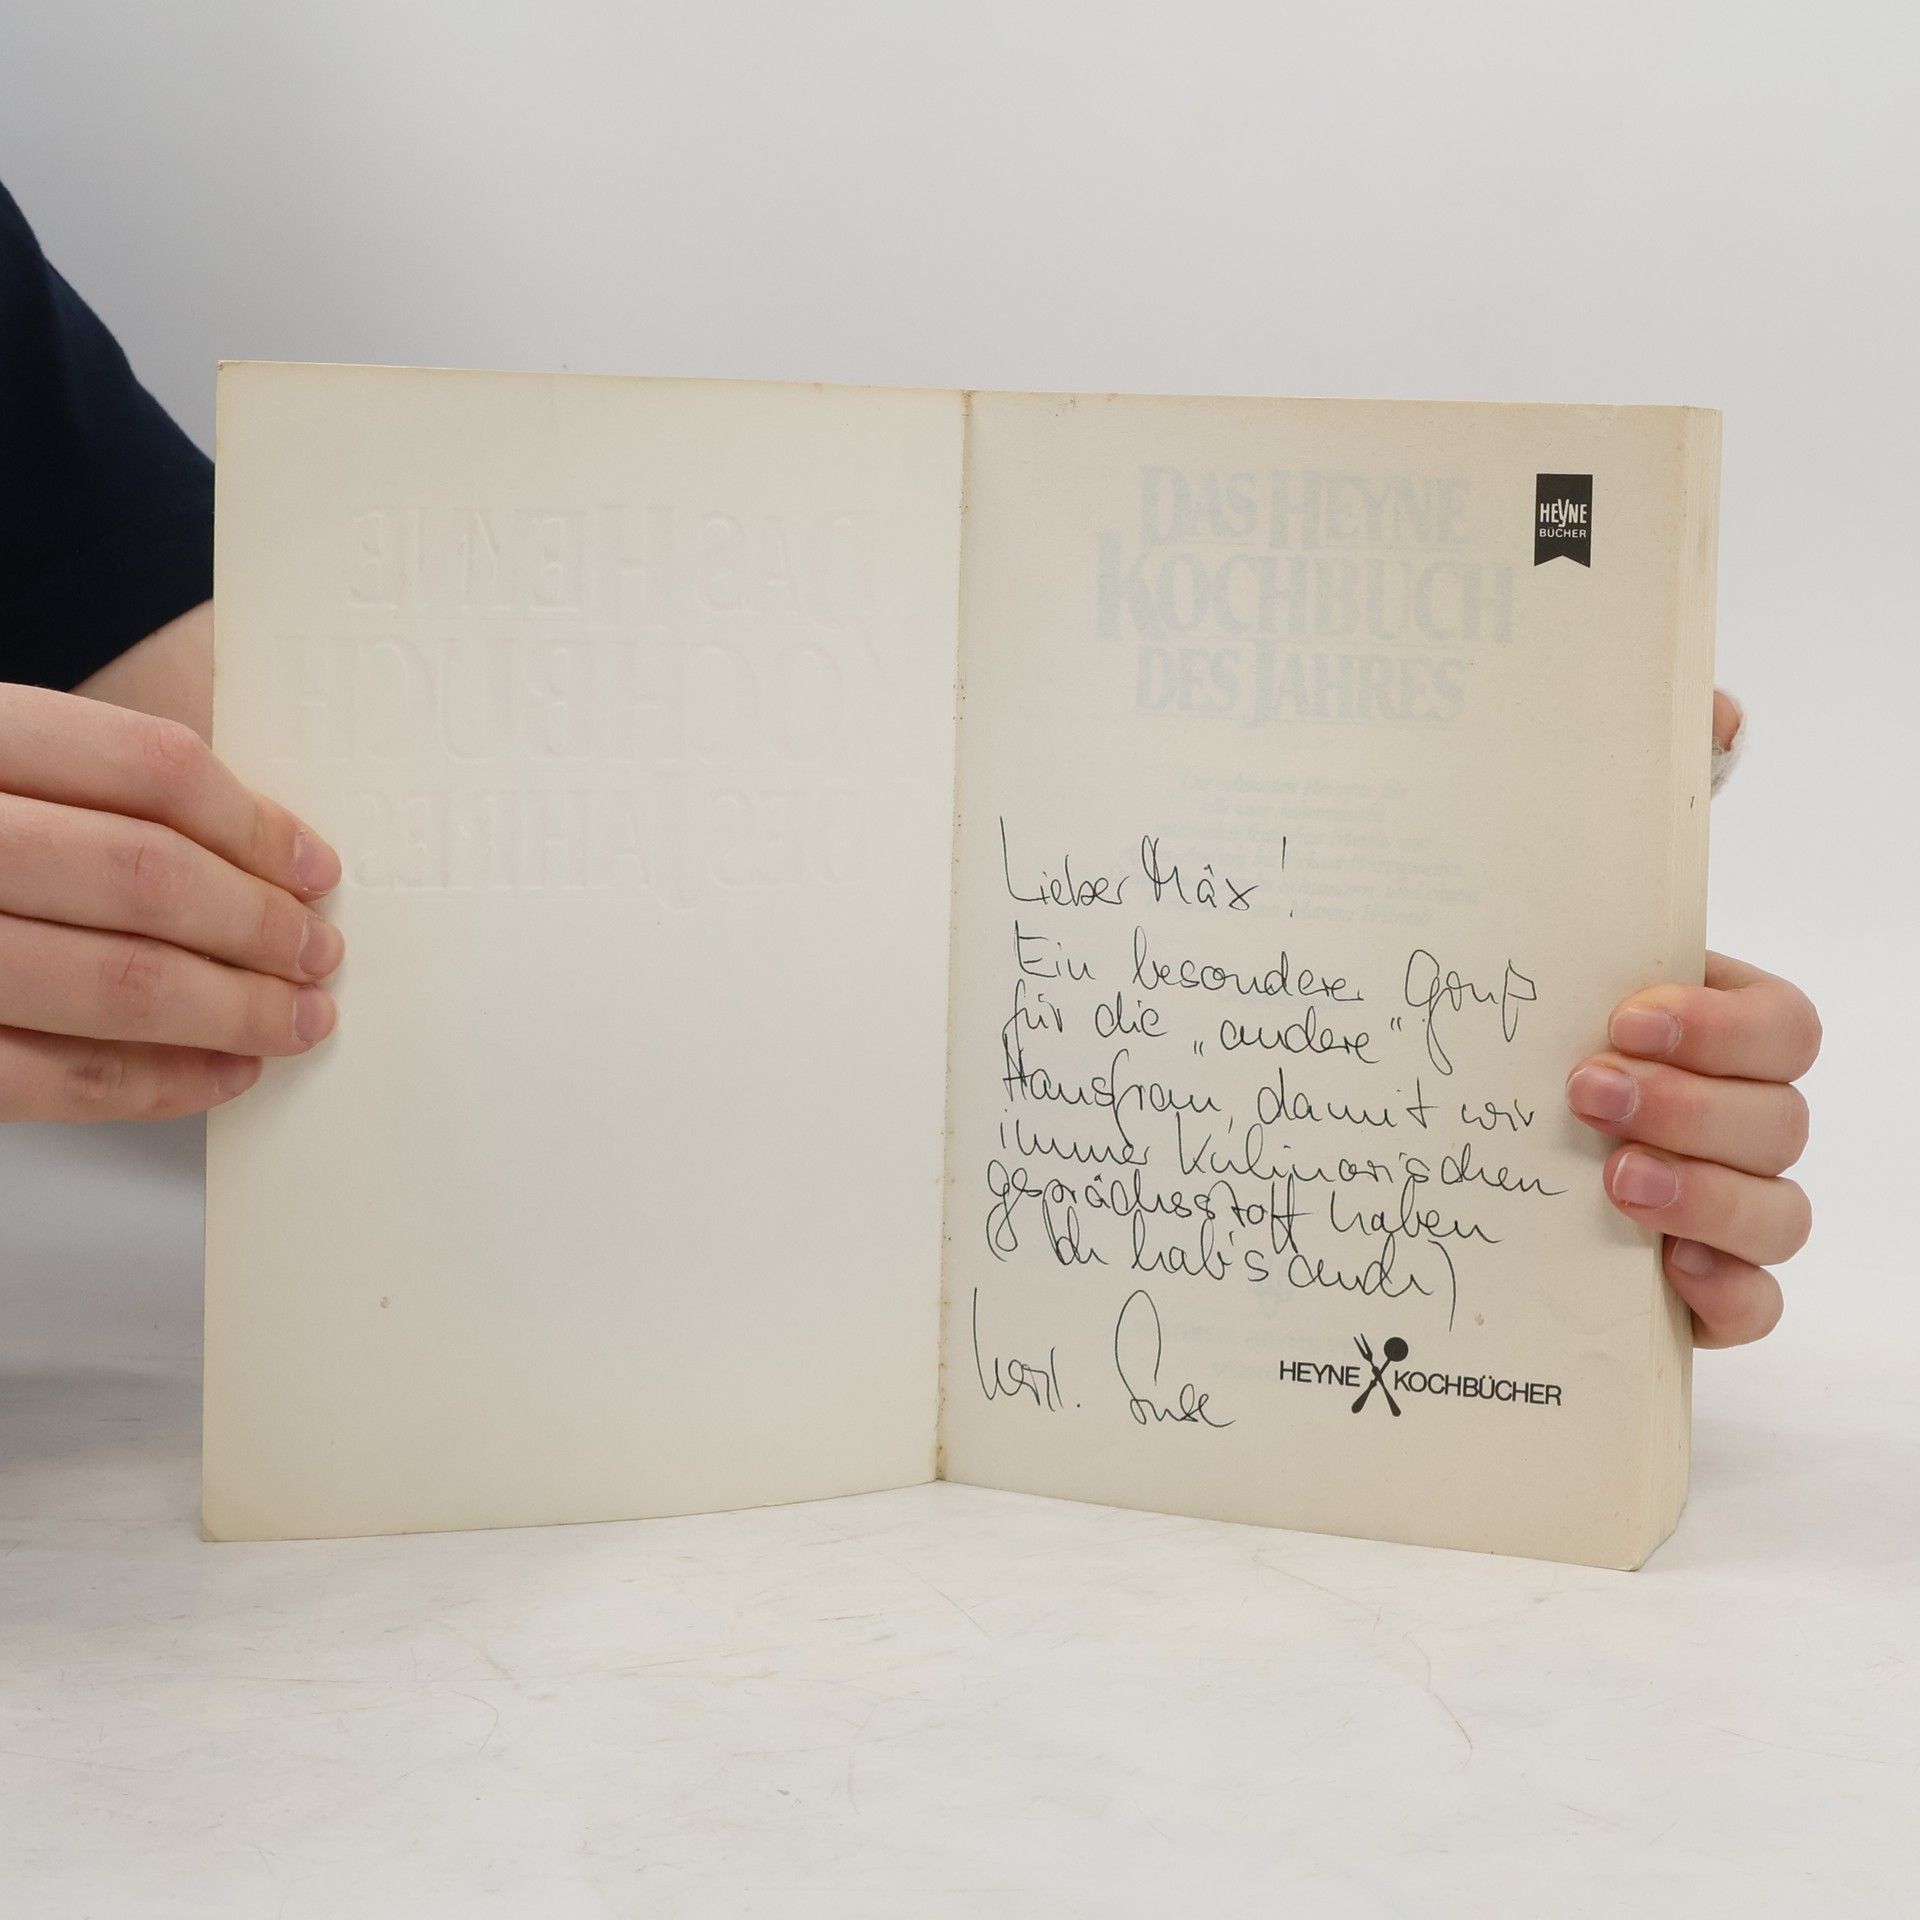 DAS HEYNE
KOCHBUCH
DES JAHRES
DAS HEYNE
KOCHBUCH
DES JAHRES
HEYNE
BÜCHER
Lieber Mäx!
Ein besonderer Gruß
für die „andere“
Hausfrau, damit wir
immer Kulinarischen
gesprächsstoff haben
(Ich hab's auch)
HEYNE KOCHBÜCHER